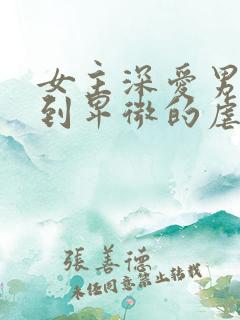 女主深愛男
到卑微的虐
張善德
未经同意禁止转载